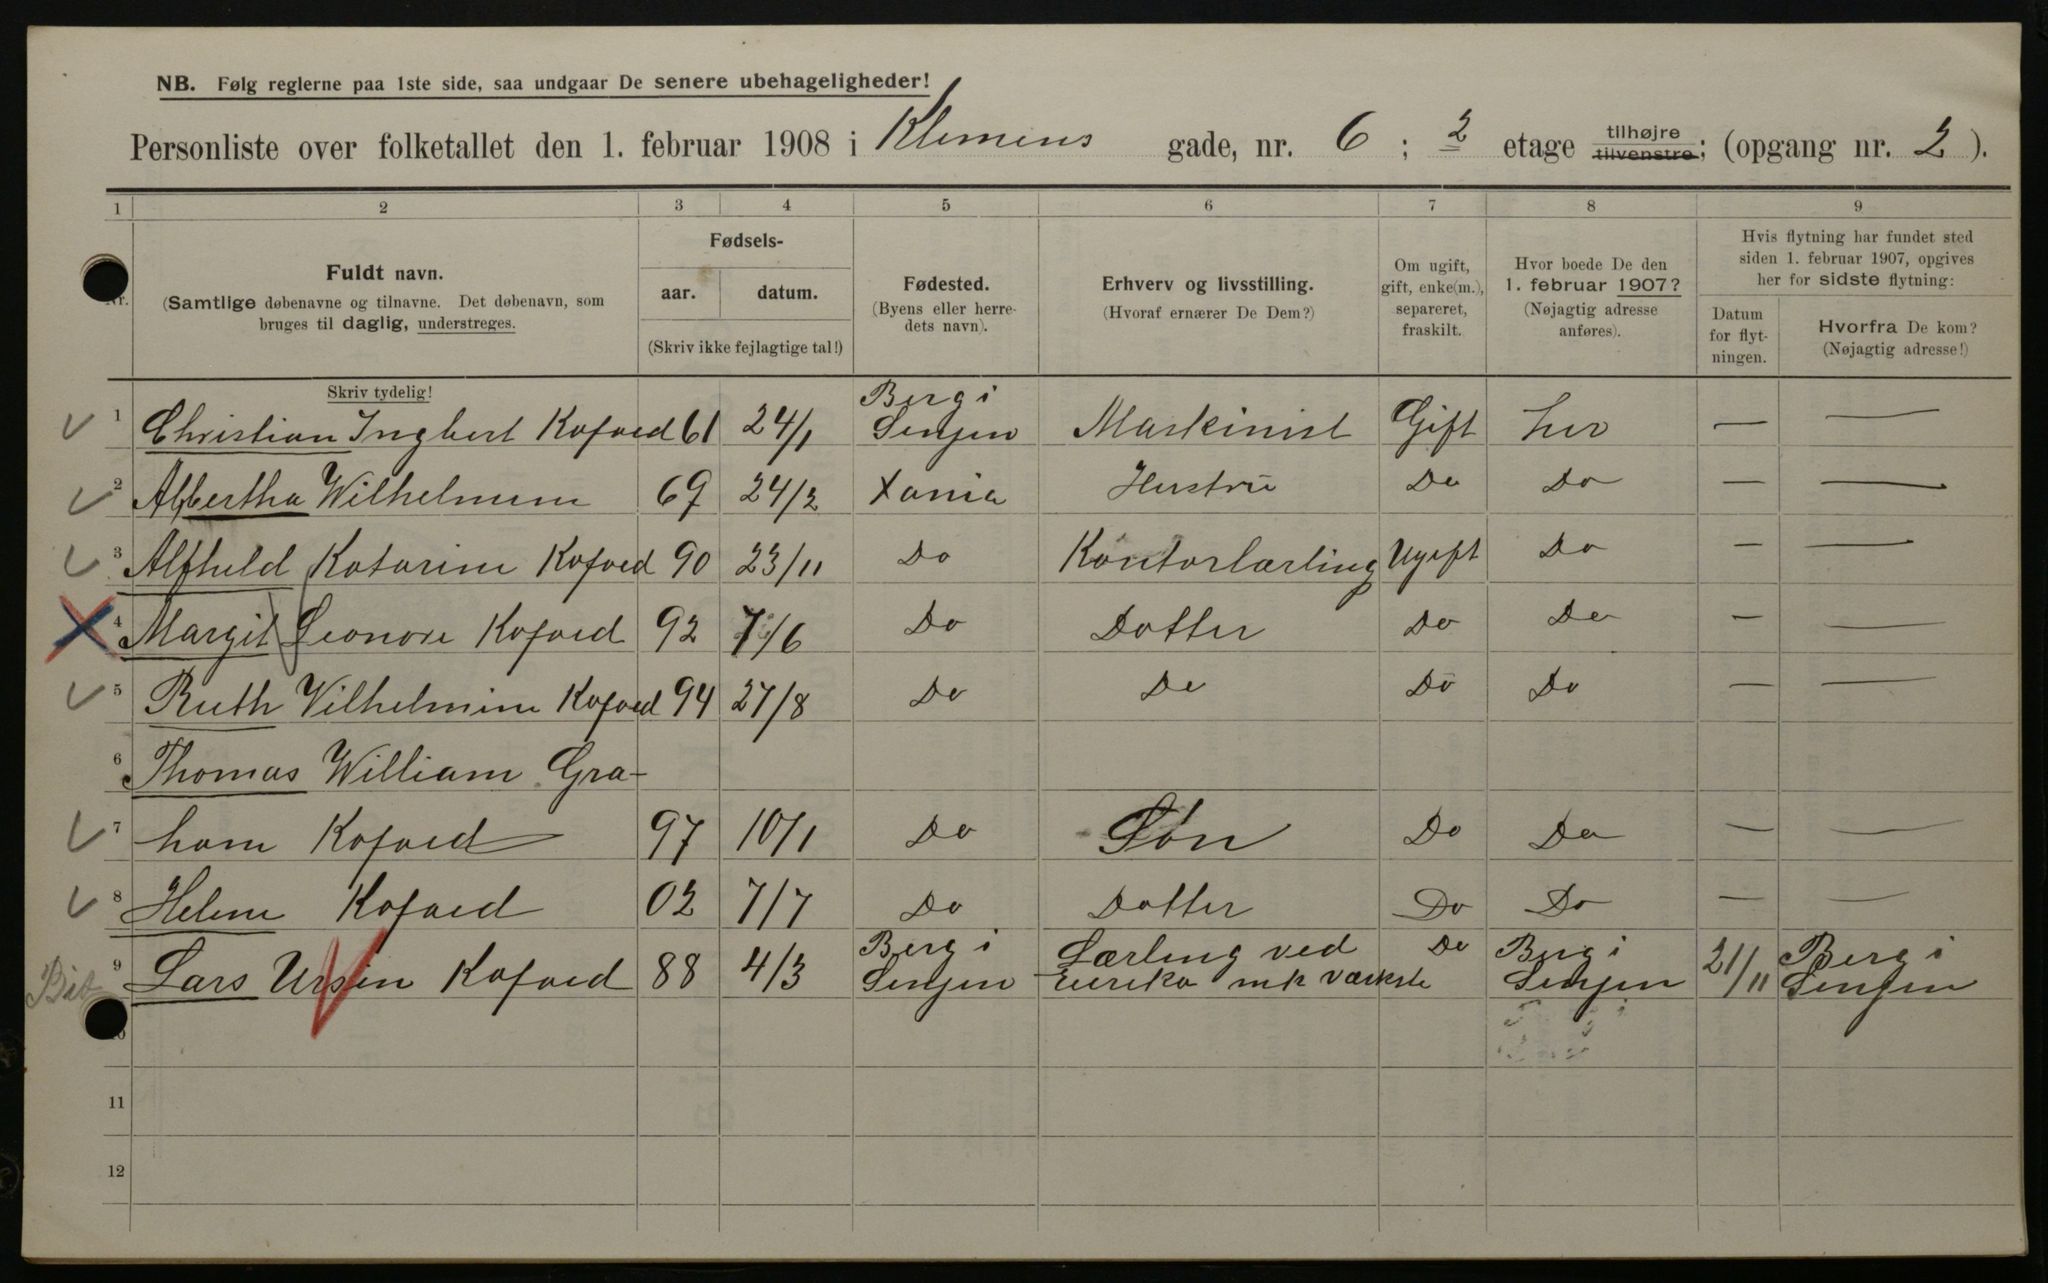 NB. Følg reglerne paa 1ste side, saa undgaar De senere ubehageligheder!
Personliste over folketallet den 1. februar 1908 i Klemens gade, nr. 6 ; 2 etage tilhøjre tilvenstre; (opgang nr. 2 ).
1 2 3 4 5 6 7 8 9
Nr.
Fuldt navn.
(Samtlige døbenavne og tilnavne. Det døbenavn, som
bruges til daglig, understreges.
Skriv tydelig!
Fødsels-
aar. datum.
(Skriv ikke fejlagtige tal!)
Fødested.
(Byens eller herre-
dets navn).
Erhverv og livsstilling.
(Hvoraf ernærer De Dem?)
Om ugift,
gift, enke(m.),
separeret,
fraskilt.
Hvor boede De den
1. februar 1907?
(Nøjagtig adresse
anføres).
Hvis flytning har fundet sted
siden 1. februar 1907, opgives
her for sidste flytning:
Datum
for flyt-
ningen.
Hvorfra De kom?
(Nøjagtig adresse!)
1 Christian Ingbert Kofoed 61 24/1 Berg i Senjen Maskinist Gift her — —
2 Albertha Wilhelmine 69 24/2 Xania Hustru Do Do — —
3 Alfhild Katarine Kofoed 90 23/11 Do Kontorlærling Ugift Do — —
4 Margit Leonore Kofoed 92 7/6 Do Datter Do Do — —
5 Ruth Vilhelmine Kofoed 94 27/8 Do Do Do Do — —
6 Thomas William Gra-
7 ham Kofoed 97 10/1 Do Søn Do Do — —
8 Helene Kofoed 02 7/7 Do Datter Do Do — —
9 Lars Ursin Kofoed 88 4/3 Berg i Senjen Lærling ved Eureka mk værkste Do Berg i Senjen 21/11 Berg i Senjen
10
11
12